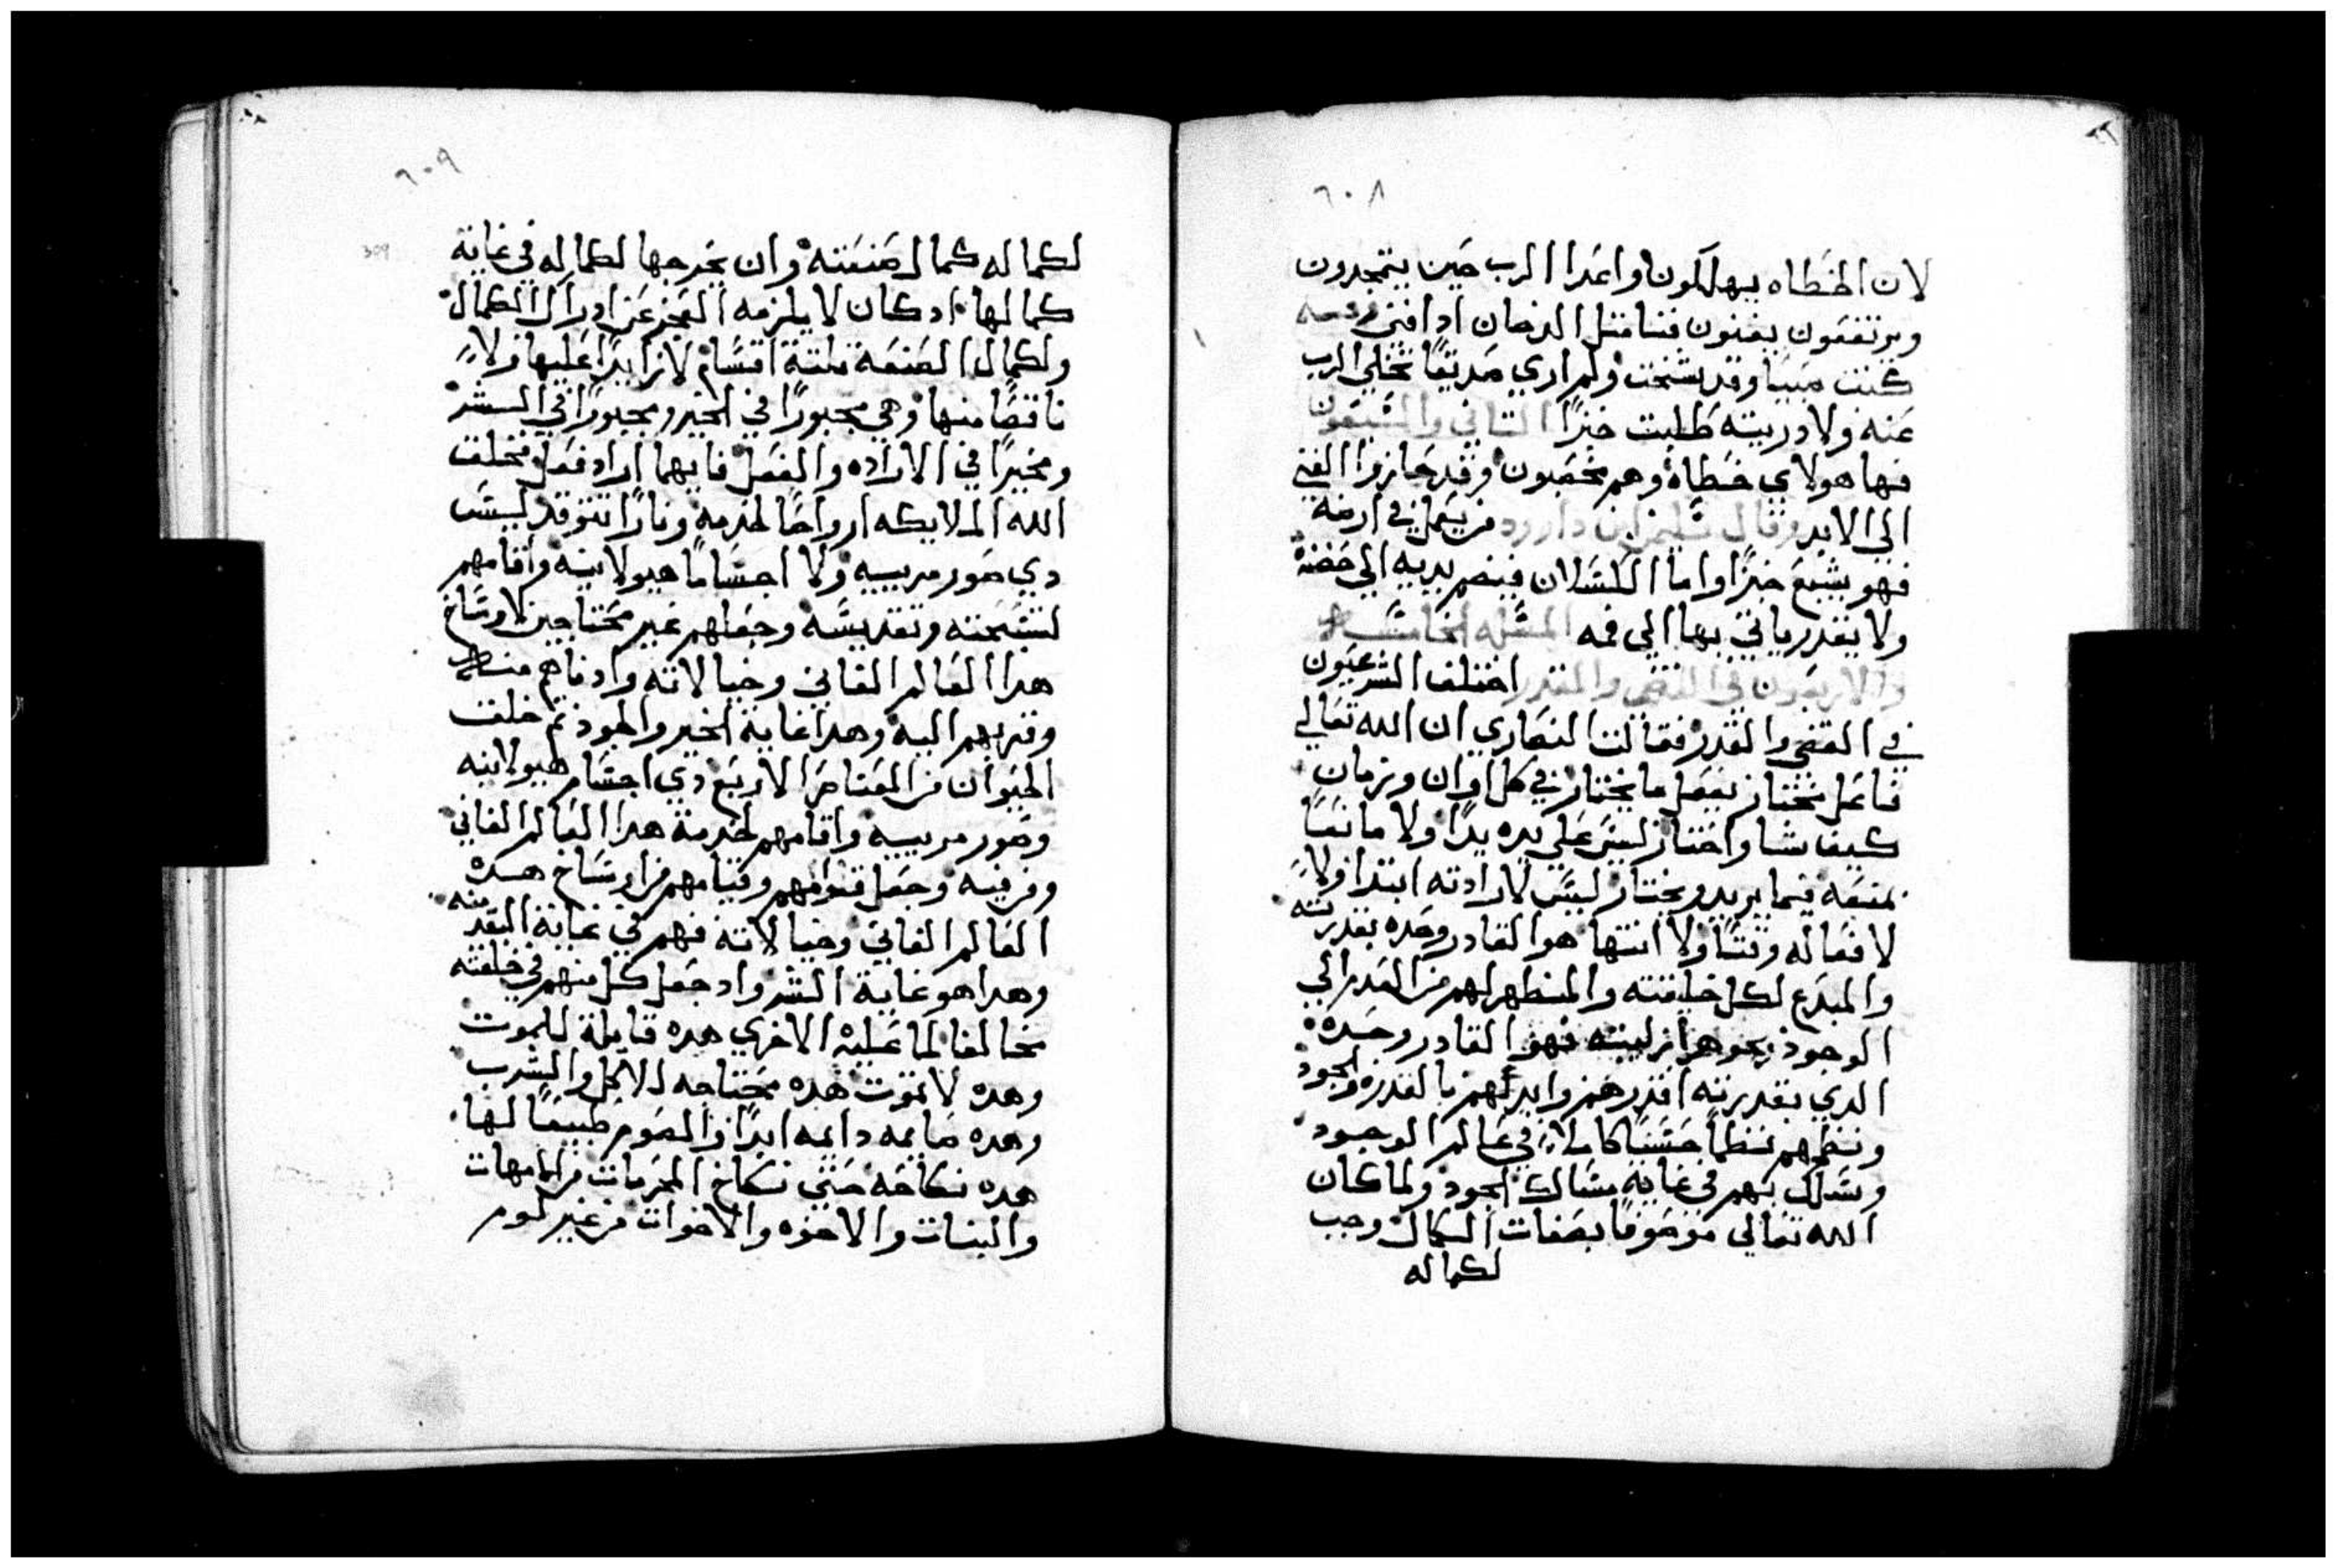 ٦٠٨
لان الخطاه يهلكون واعدا الرب حين يتمجدون
ويرتفعون يفنون فنا مثل الدخان ادا فني
كنت صبيا وقد شخت ولم اري صديقا تخلي الرب
عنه ولا دريته طلبت خبزا الثاني والسبعون
فها هولاي خطاه وهم مخصبون وقد حازوا الغني
الي الابد وقال سليمن ابن داوود من يعمل في ارضه
فهو يشبع خبزا واما الكسلان فيضم يديه الي حضنه
ولا يقدر ياتي بها الي فمه المسله الخامسه
والاربعون في القضي والقدر اختلف الشرعيون
في القضي والقدر فقالت النصاري ان الله تعالي
فاعل مختار يفعل ما يختار في كل اوان وزمان
كيف شا واختار ليس علي يده يدا ولا مانعا
يمنعه فيما يريد ويختار ليس لارادته ابتدا ولا
لافعاله ونشا ولا انتها هو القادر وحده بقدرته
والمبدع لكل خليقته والمظهر لهم من العدم الي
الوجود بجوهر ازليته فهو القادر وحده
الدي بقدرته اقدرهم وابدلهم بالقدره والجود
ونظمهم نظما حسنا كاملا في عالم الوجود
وسلك بهم في غاية مسالك الجود ولما كان
الله تعالي موصوفا بصفات الكمال وجب
لكماله
٦٠٩
لكماله كمال صنعته وان يخرجها لكماله في غاية
كمالها اد كان لا يلزمه العجز عن ادراك الكمال
ولكمال الصنعة ثلثة اقسام لا زايدا عليها ولا
ناقصا منها وهي مجبورا في الخير ومجبورا في الشر
ومخيرا في الاراده والفعل فايهما اراد فعل فخلق
الله الملايكه ارواحا لخدمه ونارا تتوقد ليس
دي صور مربيه ولا اجساما هيولانيه واقامهم
لتسبحته وتقديسه وجعلهم غير محتاجين لاوساخ
هدا العالم الفاني وخيالاته وادناهم منه
وقربهم اليه وهدا غاية الخير والجود ثم خلق
الحيوان من العناصر الاربع دي اجسام هيولانيه
وصور مربيه واقامهم لخدمة هدا العالم الفاني
وفرقيه وجعل قوامهم وقيامهم من اوساخ هده
العالم الفاني وخيالاته فهم في غاية البعد منه
وهدا هو غاية الشر واد جعل كل منهم في خلقته
مخالفا لما عليه الاخري هده قابلة للموت
وهده لا تموت هده محتاجه للاكل والشرب
وهده صايمه دايمه ابدا والصوم طبيعا لها
هده نكاحه حتي نكاح المحرمات من الامهات
والبنات والاخوه والاخوات من غير لوم
309